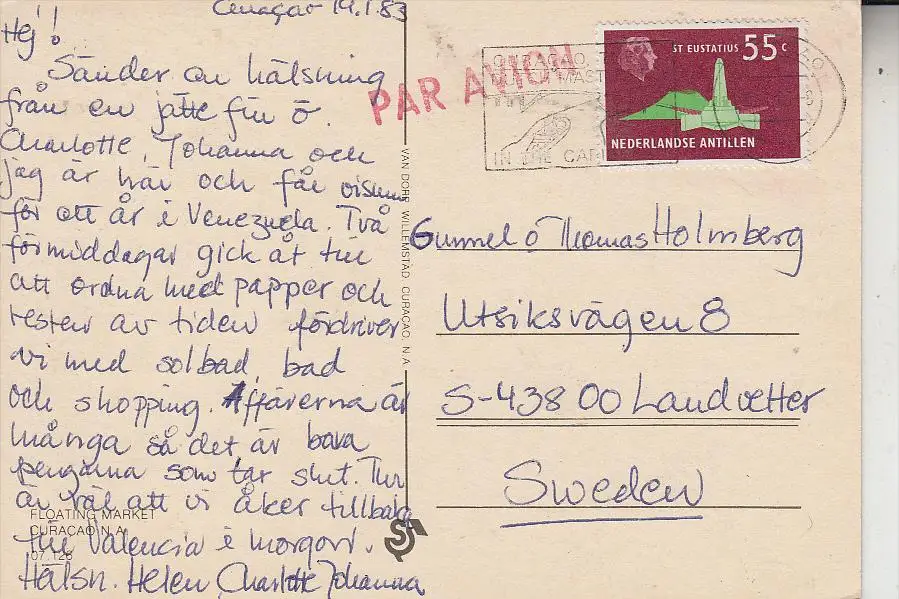 Curaçao 19.1.83
Hej!
Sänder en hälsning
från en jätte fin ö.
Charlotte, Johanna och
jag är här och får visum
för ett år i Venezuela. Två
förmiddagar gick åt till
att ordna med papper och
resten av tiden fördriver
vi med solbad, bad
och shopping. Affärerna är
många så det är bara
pengarna som tar slut. Tur
är väl att vi åker tillbaka
till Valencia i morgon.
Hälsn. Helen, Charlotte Johanna
FLOATING MARKET
CURAÇAO N.A.
07.126
VAN DORP WILLEMSTAD CURAÇAO, N.A.
PAR AVION
CURAÇAO
IN THE
ST EUSTATIUS 55c
NEDERLANDSE ANTILLEN
Gunnel o Thomas Holmberg
Utsiksvägen 8
S-438 00 Landvetter
Sweden